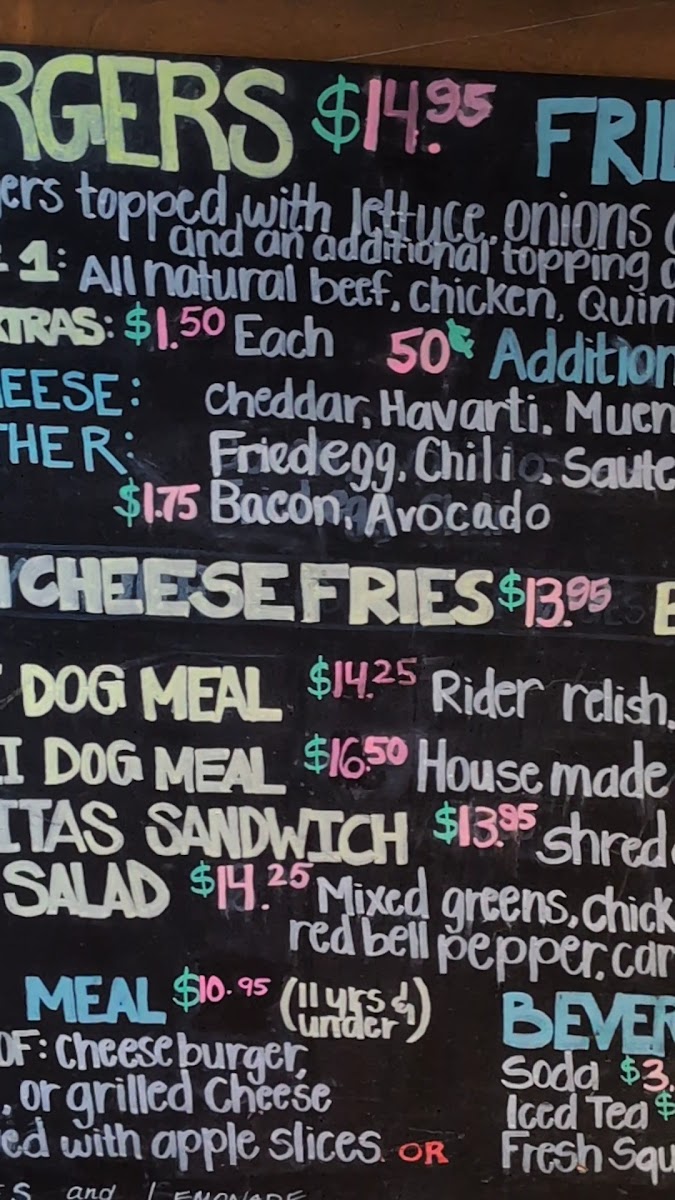 RGERS $14.95 FRIE
ers topped with lettuce, onions
and an additional topping
1: All natural beef, chicken, Quin
XTRAS: $1.50 Each 50¢ Addition
HEESE: cheddar, Havarti, Muen
THER: Fried egg, Chili, Saute
$1.75 Bacon, Avocado
CHEESE FRIES $13.95
DOG MEAL $14.25 Rider relish,
I DOG MEAL $16.50 House made
ITAS SANDWICH $13.95 shred
SALAD $14.25 Mixed greens, chick
red bell pepper, car
MEAL $10.95 (11 yrs & under)
OF: Cheeseburger,
, or grilled Cheese
ed with apple slices OR
BEVER
Soda $3.
Iced Tea $
Fresh Squ
and LEMONADE